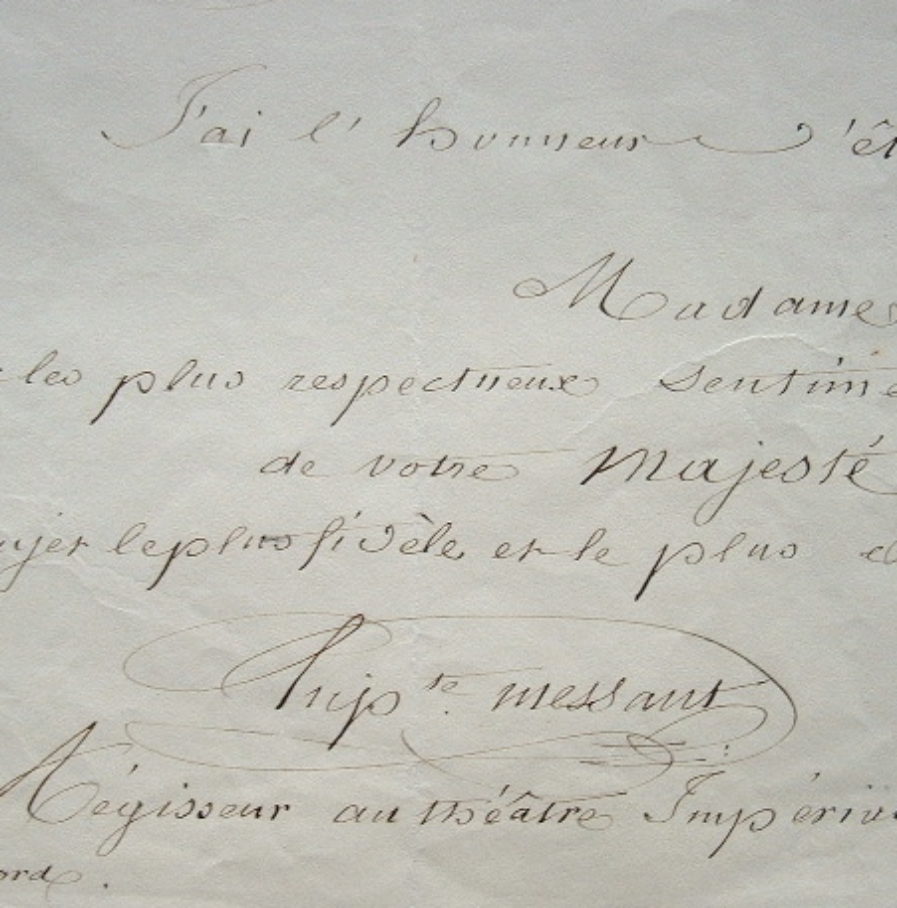 J'ai l'honneur d'êt
Madame
les plus respectueux sentime
de votre Majesté
ujet le plus fidèle et le plus d
messant
Régisseur au théâtre Impéria
ord.